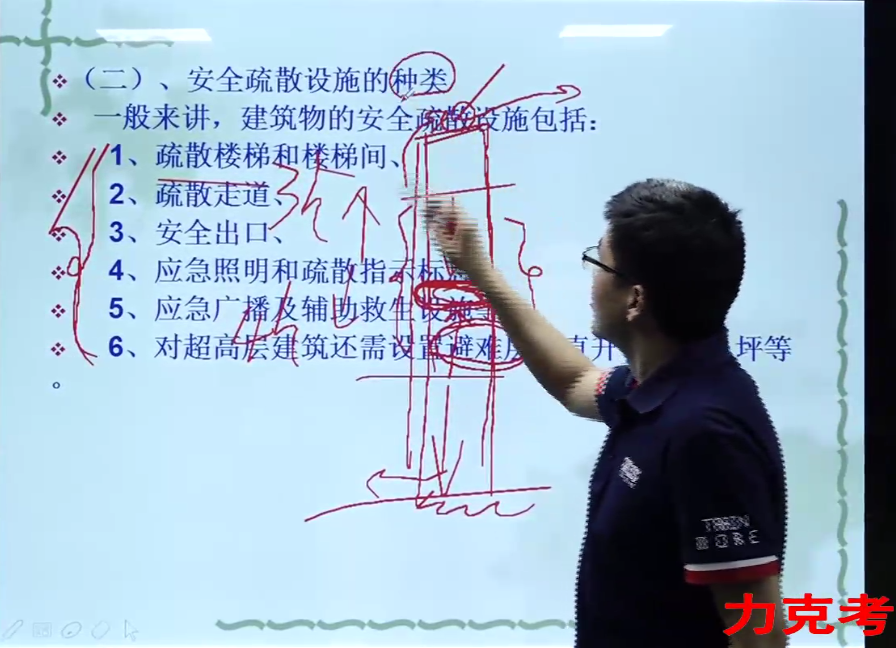 （二）、安全疏散设施的种类
一般来讲，建筑物的安全疏散设施包括：
1、疏散楼梯和楼梯间、
2、疏散走道、
3、安全出口、
4、应急照明和疏散指示标
5、应急广播及辅助救生设施
6、对超高层建筑还需设置避难 直升 坪等
。
力克考